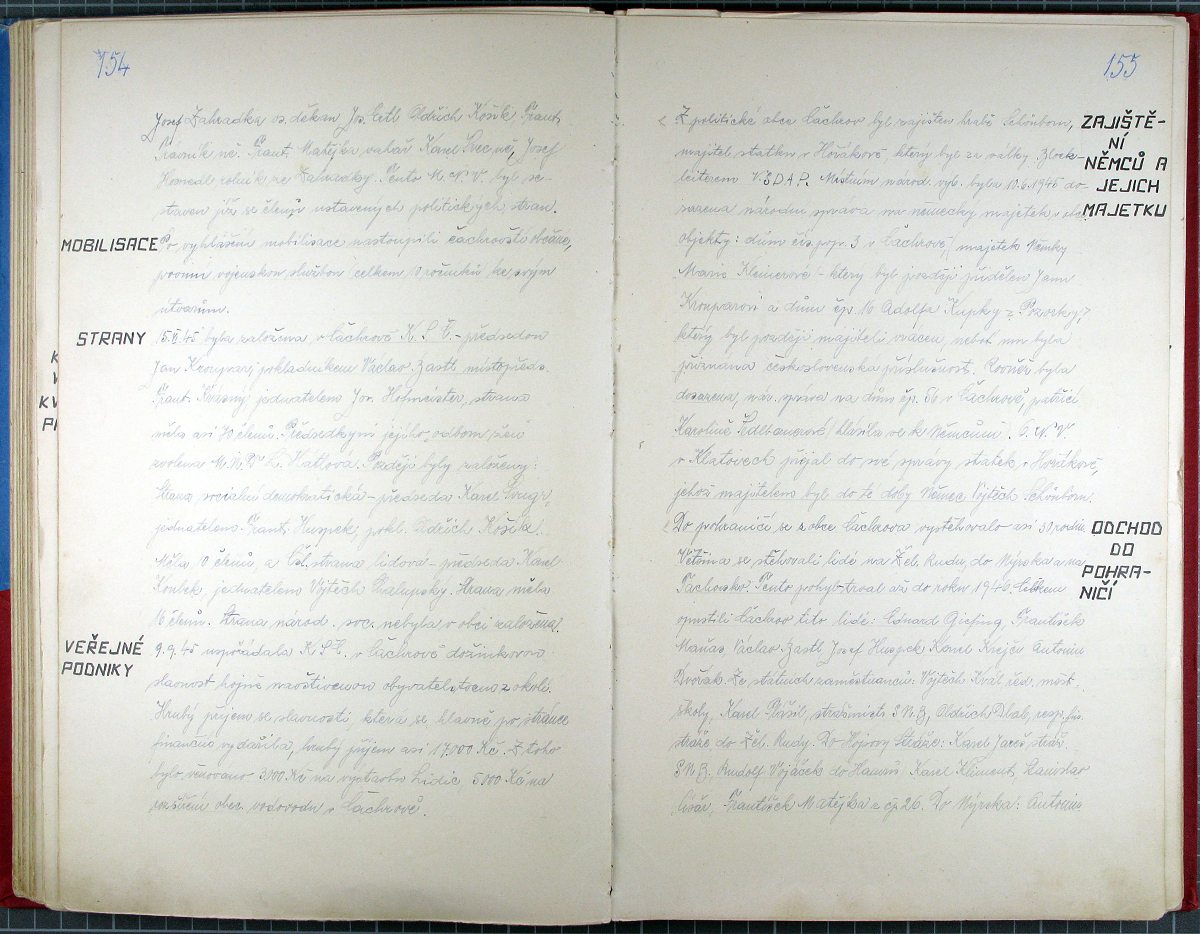 154
Josef Zahradka os. děkan Jos. Cetl Oldřich Košík Frant.
nč. Frant. Matějka valář Karel Švec nč, Josef
rolník ze Zahrádky. Tento M. N. V. byl se-
staven již se členů ustavených politických stran.
MOBILISACE
Po vyhlášení mobilisace nastoupili čachrovští občané,
povinni vojenskou službou celkem 10 ročníků ke svým
útvarům.
STRANY
15.6.45 byla založena v Čachrově K. S. Č. - předsedou
Jan Kroupar, pokladníkem Václav Zastl místopředs.
Frant. Krásný jednatelem Jos. Hofmeister, strana
měla asi 70 členů. Předsedkyní jejího odboru žen
zvolena Hatlová. Později byly založeny:
Strana sociálně demokratická - předseda Karel
jednatelem Frant. Huspek, pokl. Oldřich Košík.
Měla 10 členů, a Čsl. strana lidová - předseda Karel
Koubek jednatelem Vojtěch Chalupský. Strana měla
16 členů. Strana národ. soc. nebyla v obci založena.
VEŘEJNÉ
PODNIKY
9.9.45 uspořádala K S Č. v Čachrově dožínkovou
slavnost hojně navštívenou obyvatelstvem z okolí.
Hrubý příjem se slavnosti která se hlavně po stránce
finanční vydařila, hrubý příjem asi 17.000 Kč. Z toho
bylo věnováno 3000 Kč na výstavbu Lidic, 5000 Kč na
rozšíření obec. vodovodu v Čachrově.
155
ZAJIŠTĚ-
NÍ
NĚMCŮ A
JEJICH
MAJETKU
Z politické obce Čachrov byl zajištěn hrabě Schönborn,
majitel statku v Hořákově, který byl za války Block-
leiterem NSDAP. Místním národ. výb. byla 10.6.1945 do-
sazena národní správa na německý majetek a
objekty: dům čís. pop. 3 v Čachrově, majetek Němky
Marie Kleinerové - který byl později přidělen Janu
Krouparovi a dům čp. 10 Adolfa Kupky z
který byl později majiteli vrácen, neboť mu byla
přiznána československá příslušnost. Rovněž byla
dosazena, nár. správa na dům čp. 56 v Čachrově, patřící
Karolině Sedlbauerové (hlásila se k Němcům). O. N. V.
v Klatovech přijal do své správy statek v Hořákově,
jehož majitelem byl do té doby Němec Vojtěch Schönborn.
ODCHOD
DO
POHRA-
NIČÍ
Do pohraničí se z obce Čachrova vystěhovalo asi 30 rodin.
Většina se stěhovali lidé na Žel. Rudu, do Nýrska a na
Tachovsko. Tento pohyb trval až do roku 1946. Celkem
opustili Čachrov tito lidé: Eduard Giesing, František
Maňas Václav Zastl Josef Huspek Karel Krejčí Antonín
Dvořák. Ze státních zaměstnanců: Vojtěch Král řed. měšť.
školy, Karel Plášil, strážmistr S N B, Oldřich Dlab, resp. fin.
stráže do Žel. Rudy. Do Hojsovy Stráže: Karel Jareš stráž.
S N B. Rudolf Vojáček do Hamrů Karel Kliment, Stanislav
Císař, František Matějka z čp. 26. Do Nýrska: Antonín